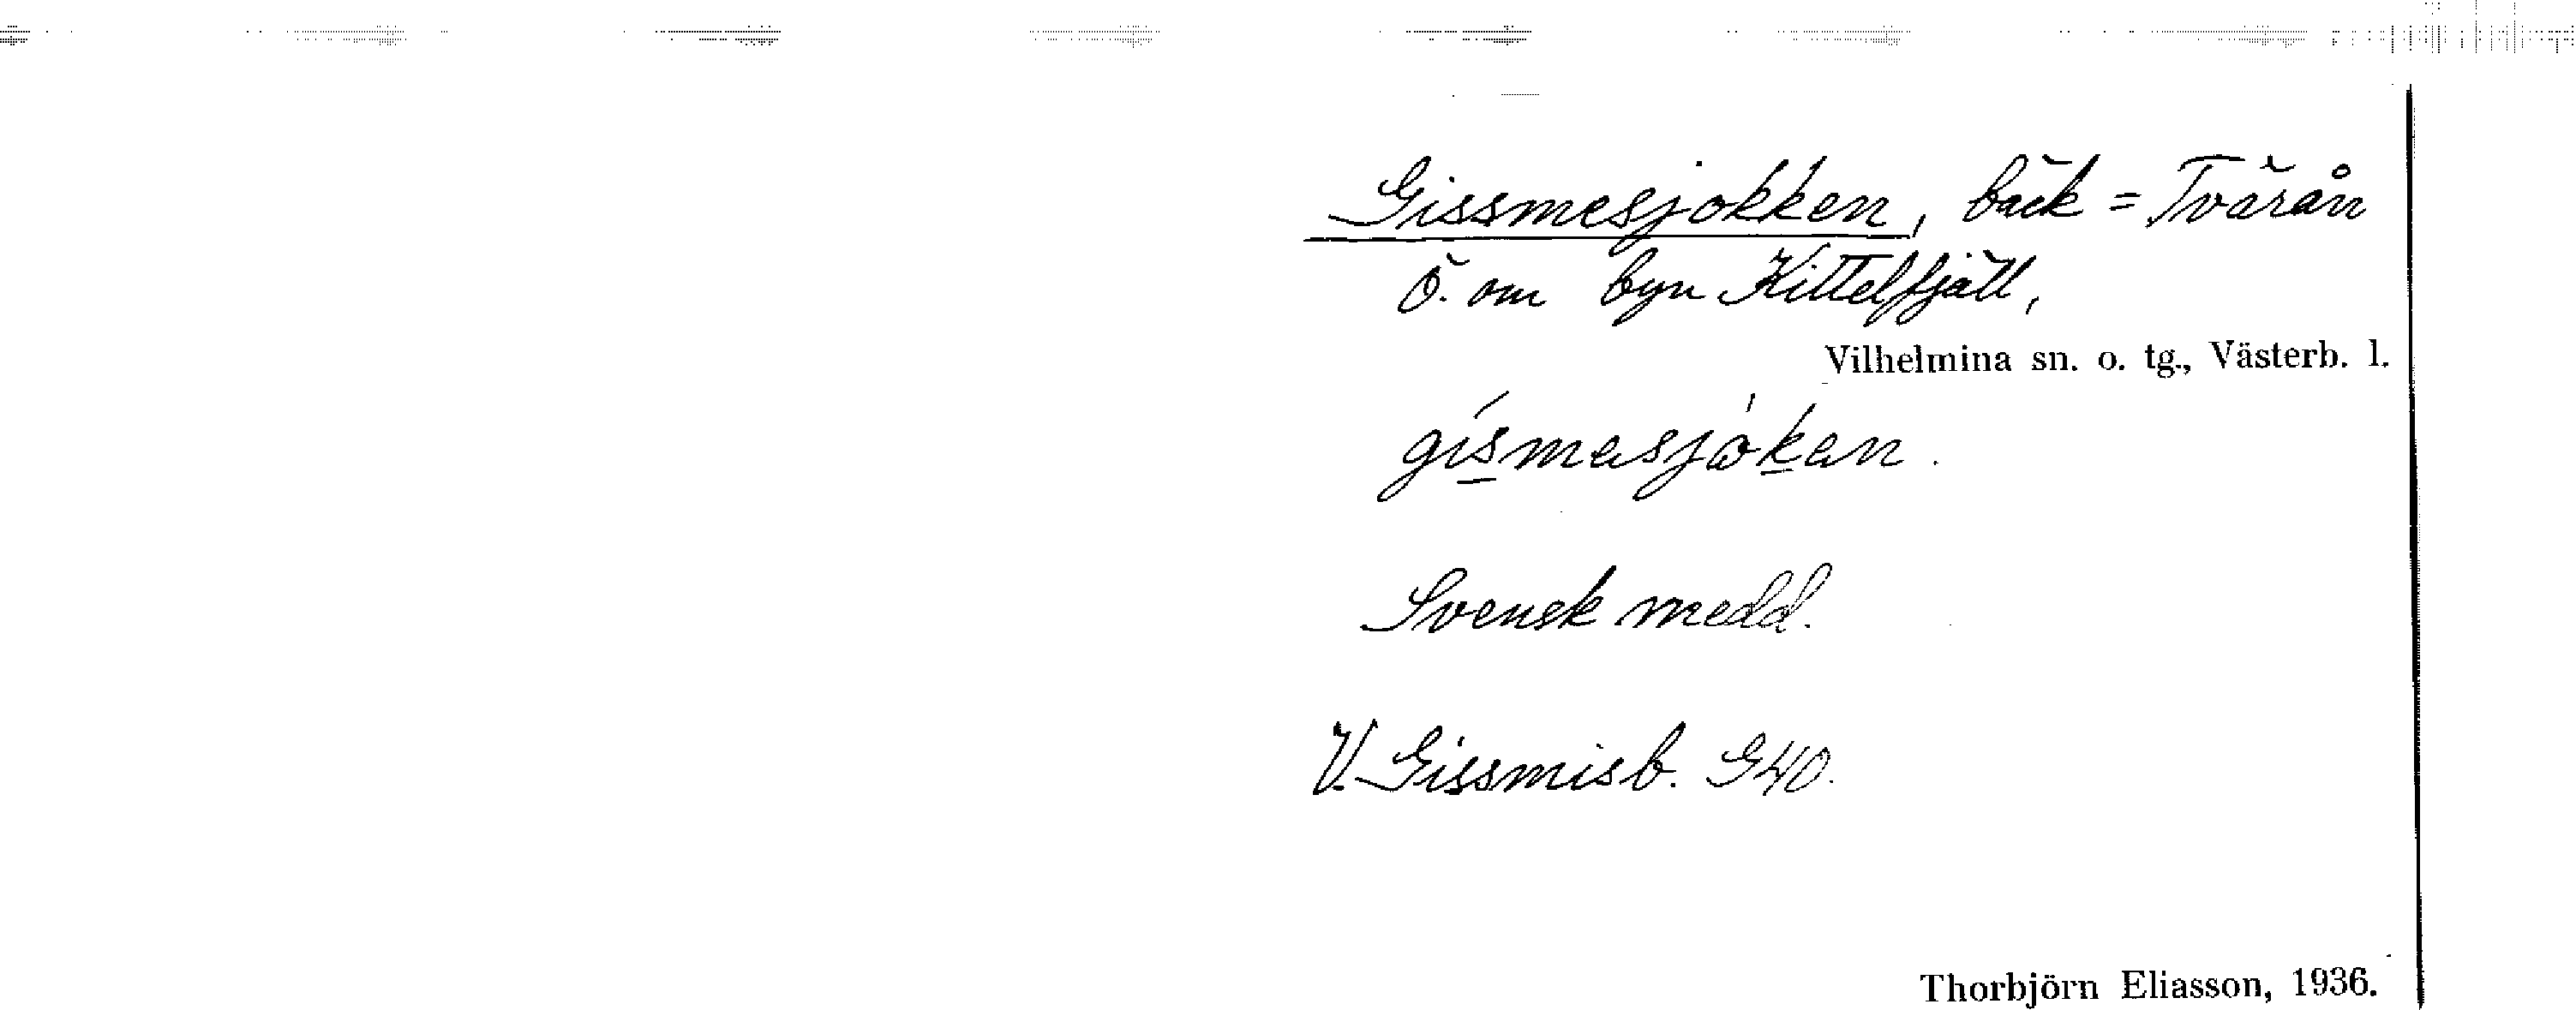 Gissmesjokken, bäck = Tvärån
Ö. om byn Kittelfjäll,
Vilhelmina sn. o. tg., Västerb. l.
Svensk medd.
V. Gissmisb. G40.
Thorbjörn Eliasson, 1936.